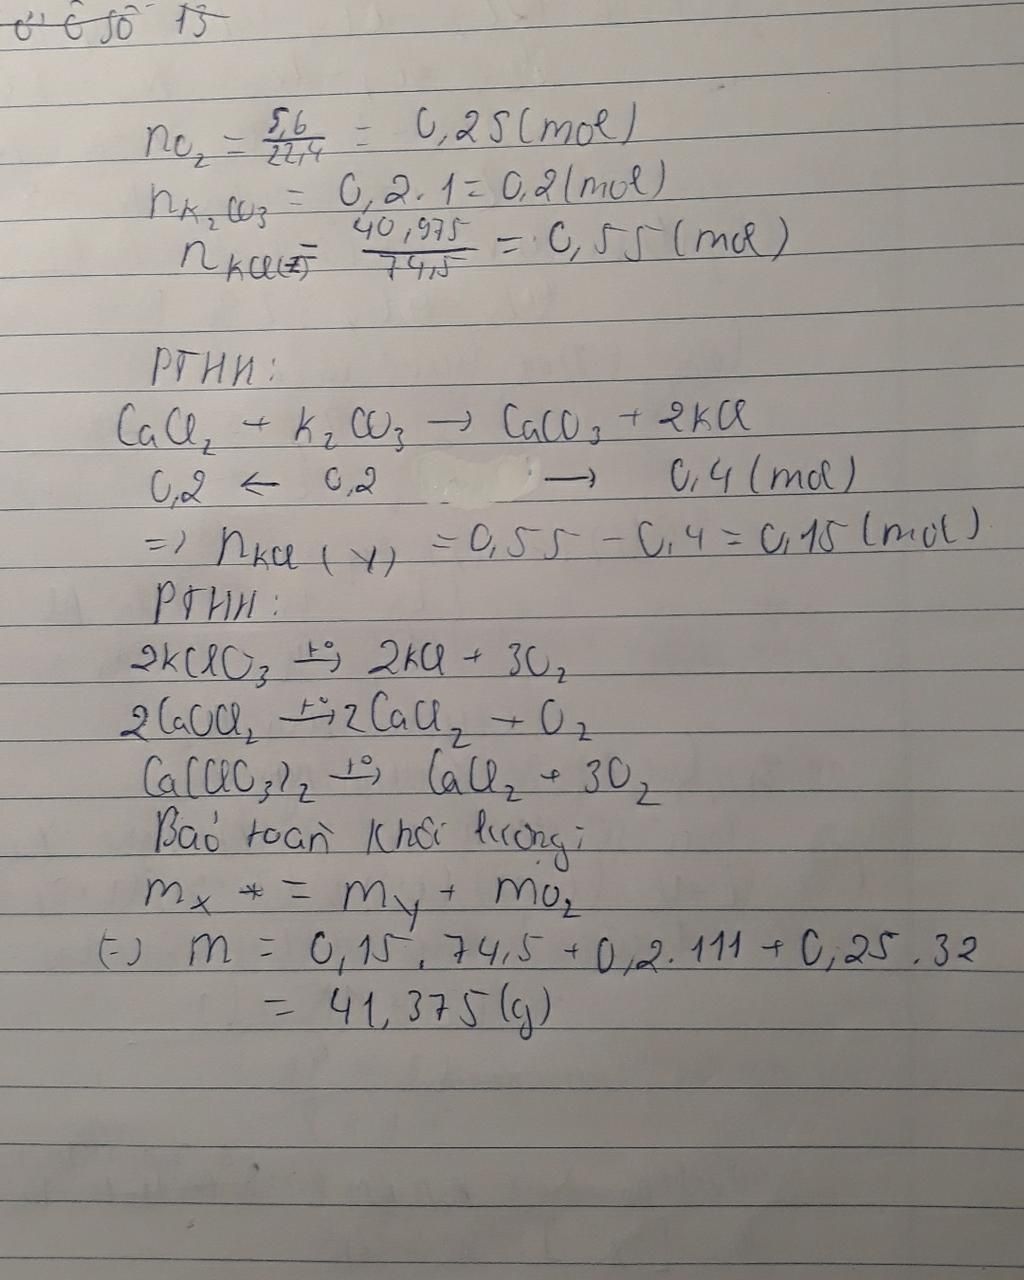 ố 13
nO₂ = 5,6/22,4 = 0,25(mol)
nK₂CO₃ = 0,2.1=0,2(mol)
nKCl(Z)= 40,975/74,5 = 0,55(mol)
PTHH:
CaCl₂ + K₂CO₃ → CaCO₃ + 2KCl
0,2 ← 0,2 → 0,4(mol)
=> nKCl (Y) = 0,55 - 0,4 = 0,15(mol)
PTHH:
2KClO₃ t°→ 2KCl + 3O₂
2CaOCl₂ t°→ 2CaCl₂ + O₂
Ca(ClO₃)₂ t°→ CaCl₂ + 3O₂
Bảo toàn khối lượng:
mX = mY + mO₂
(-) m = 0,15.74,5+0,2.111+0,25.32
= 41,375(g)